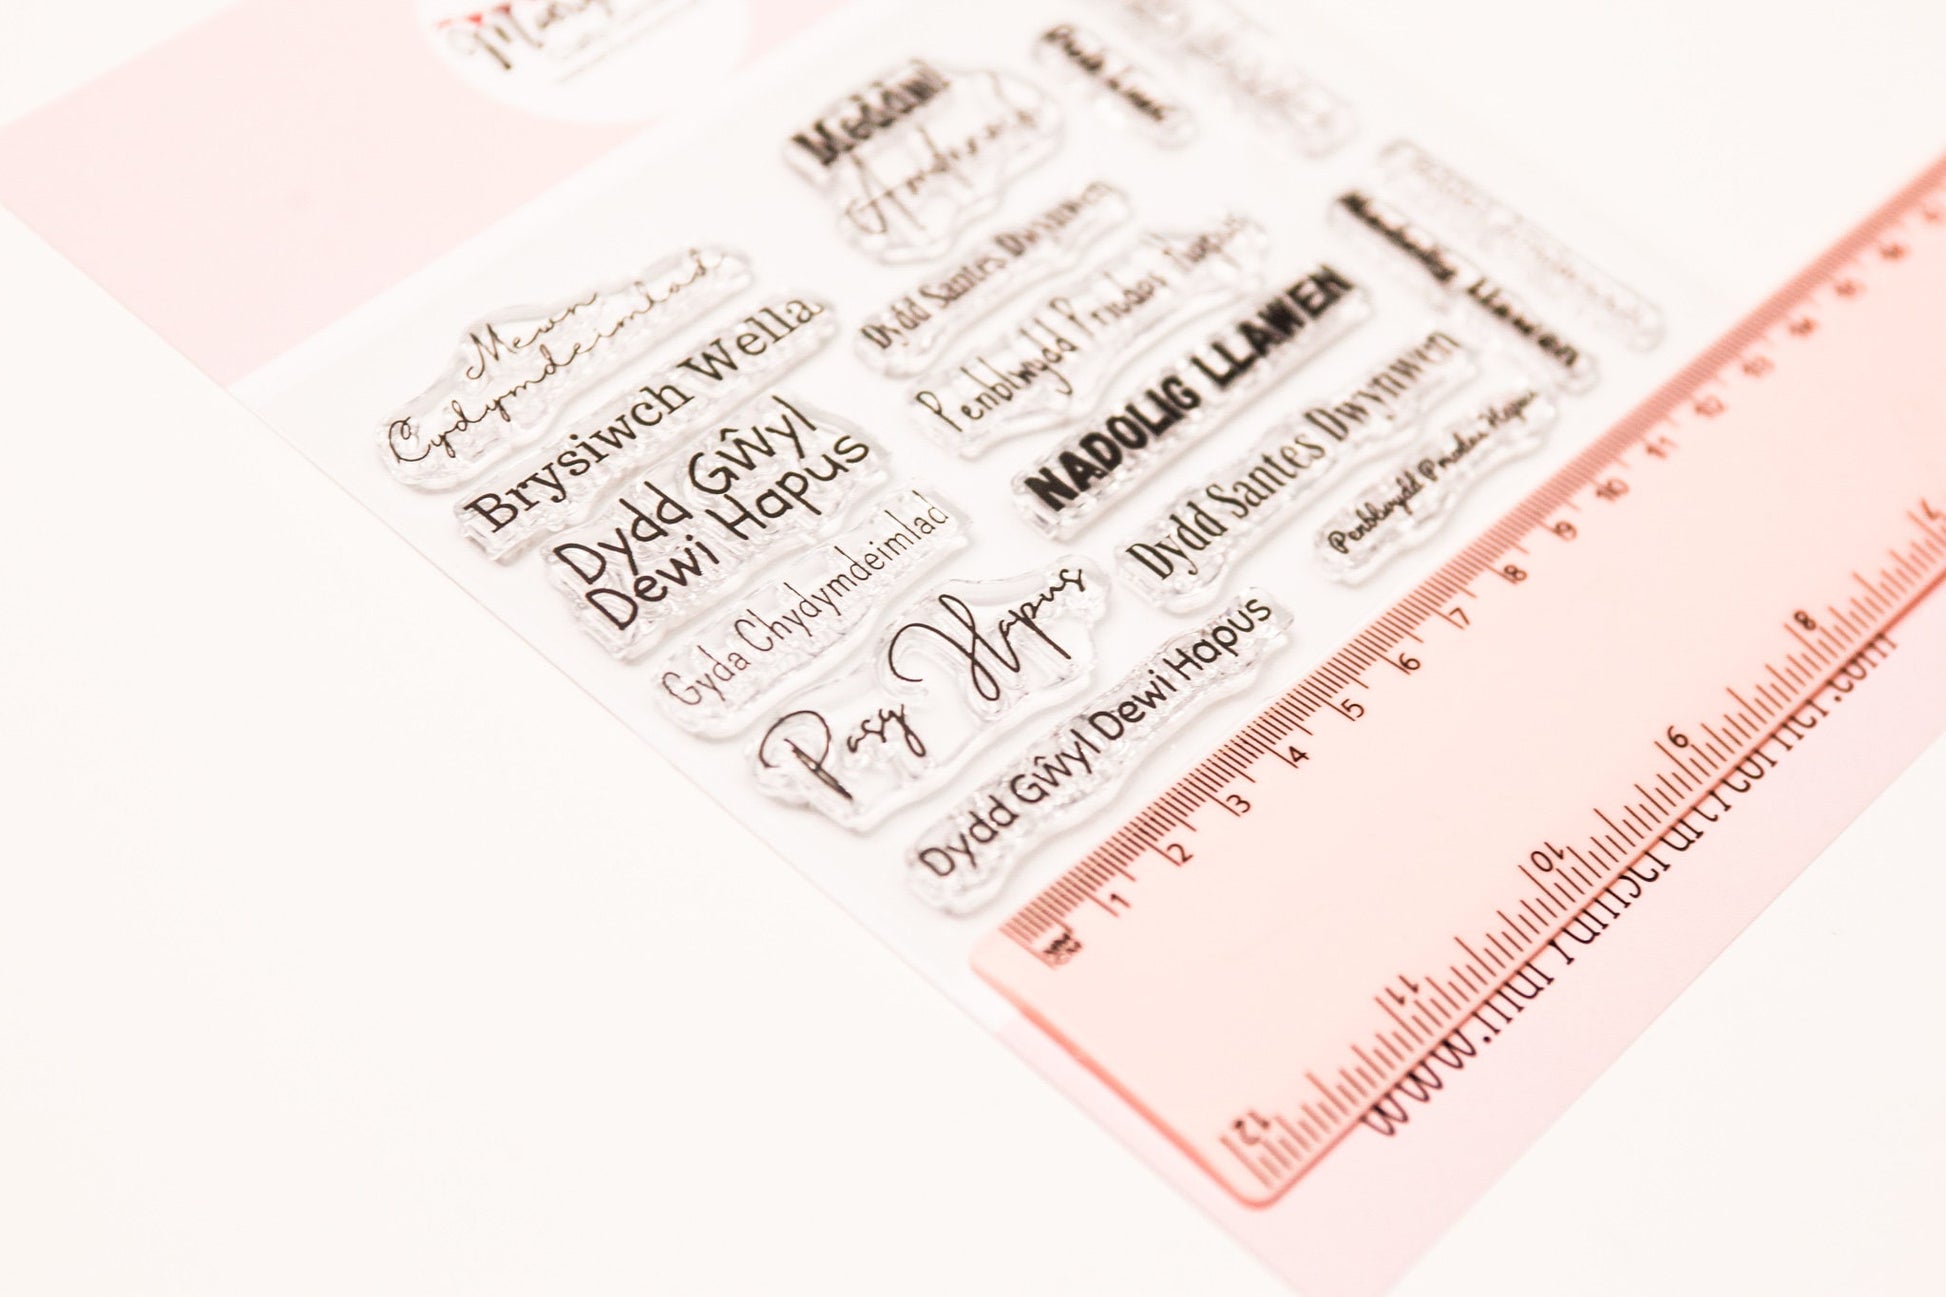 Mewn
Cydymdeimlad
Brysiwch Wella
Dydd Gŵyl
Dewi Hapus
Gyda Chydymdeimlad
Pasg Hapus
Dydd Gŵyl Dewi Hapus
Meddwl
Amdanat
Dydd Santes Dwynwen
Penblwydd Priodas Hapus
NADOLIG LLAWEN
Dydd Santes Dwynwen
Penblwydd Priodas Hapus
1 2 3 4 5 6 7 8 9 10 11 12 13 14 15 16
12 11 10 9 8 7
www.maryannscraftcorner.com